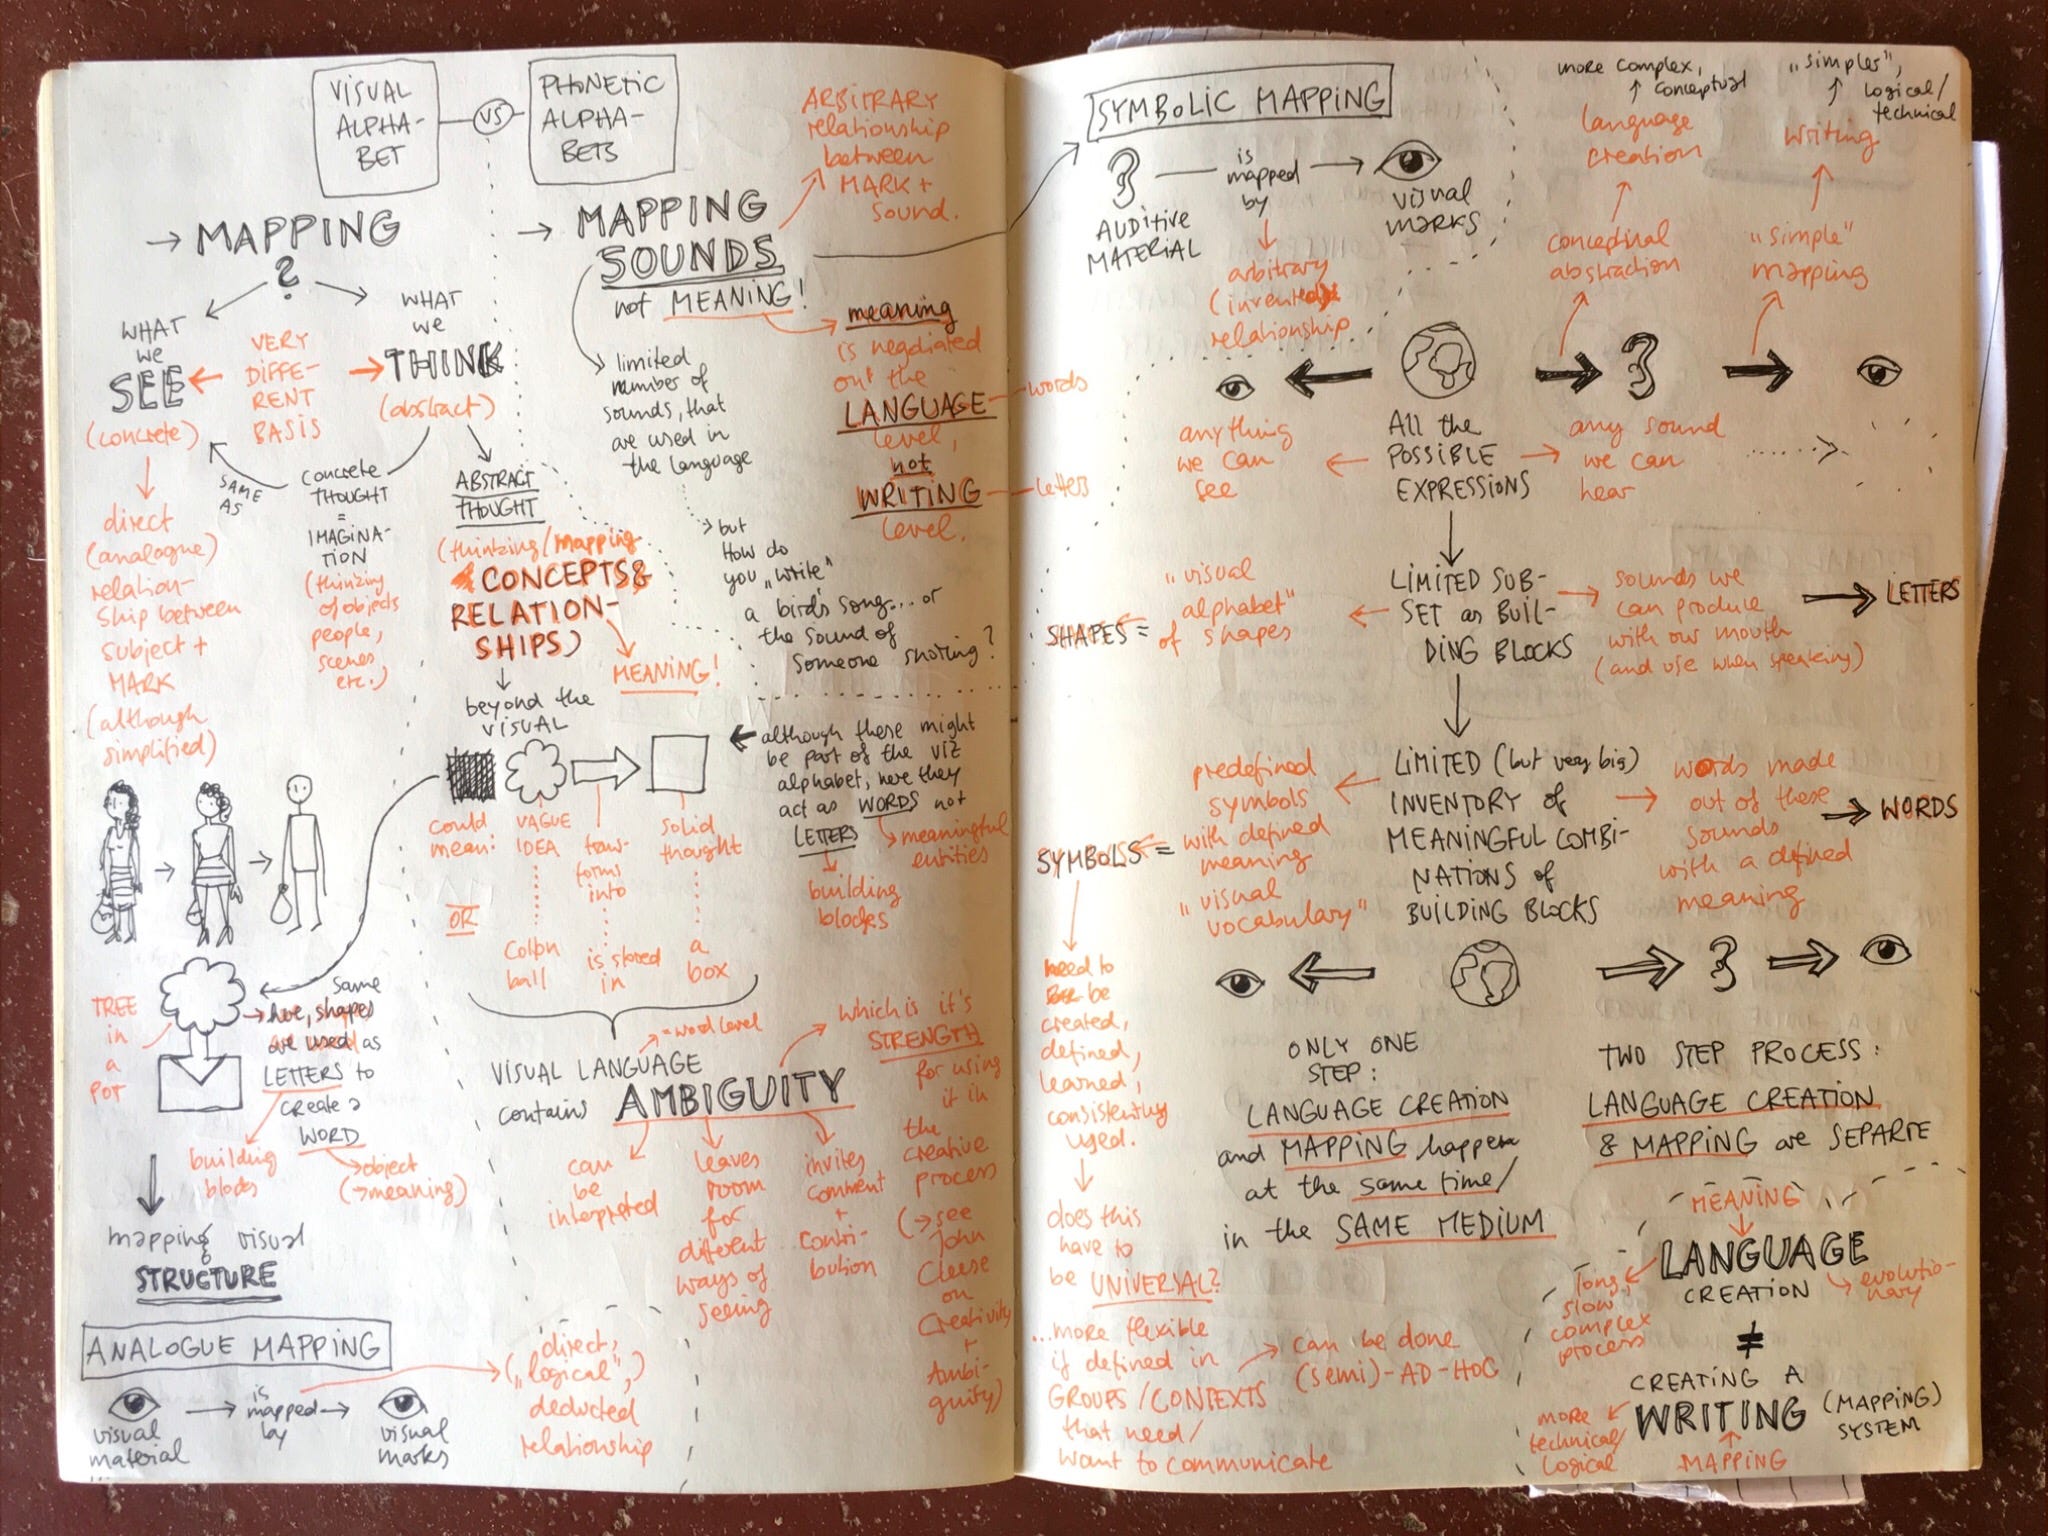 VISUAL
ALPHA-
BET
VS
PHONETIC
ALPHA-
BETS
→ MAPPING
?
WHAT
we
SEE
(concrete)
VERY
DIFFE-
RENT
BASIS
WHAT
we
THINK
(abstract)
direct
(analogue)
relation-
ship between
subject +
MARK
(although
simplified)
SAME
AS
concrete
THOUGHT
=
IMAGINA-
TION
(thinking
of objects
people,
scenes,
etc.)
ABSTRACT
THOUGHT
(thinking/mapping
CONCEPTS &
RELATION-
SHIPS)
MEANING!
beyond the
VISUAL
could
mean:
VAGUE
IDEA
trans-
forms
into
solid
thought
OR
ball
is stored
in
a
box
TREE
in
a
POT
same
shapes
are used as
LETTERS to
create a
WORD
building
blocks
object
(→meaning)
mapping visual
STRUCTURE
ANALOGUE MAPPING
visual
material
is
mapped
by
visual
marks
direct,
("logical",)
deducted
relationship
→ MAPPING
SOUNDS
not MEANING!
ARBITRARY
relationship
between
MARK +
sound.
limited
number of
sounds, that
are used in
the language
but
How do
you „write"
a birds song... or
the sound of
someone snoring?
meaning
is negdiated
out the
LANGUAGE
level,
not
WRITING
level.
words
letters
although these might
be part of the VIZ
alphabet, here they
act as WORDS not
LETTERS
meaningful
entities
building
blocks
VISUAL LANGUAGE
contains AMBIGUITY
=word level
can
be
interpreted
leaves
room
for
different
ways of
seeing
invites
comment
+
contri-
bution
which is it's
STRENGTH
for using
it in
the
creative
process
(→see
John
Cleese
on
Creativity
+
Ambi-
guity)
SYMBOLIC MAPPING
AUDITIVE
MATERIAL
is
mapped
by
visual
marks
arbitrary
(invented)
relationship
more complex,
conceptual
language
creation
conceptual
abstraction
„simpler",
logical/
technical
writing
„simple"
mapping
anything
we can
see
All the
POSSIBLE
EXPRESSIONS
any sound
we can
hear
SHAPES =
„visual
alphabet"
of shapes
LIMITED SUB-
SET as BUIL-
DING BLOCKS
sounds we
can produce
with our mouth
(and use when speaking)
LETTERS
SYMBOLS =
predefined
symbols
with defined
meaning
„visual
vocabulary"
LIMITED (but very big)
INVENTORY of
MEANINGFUL COMBI-
NATIONS of
BUILDING BLOCKS
words made
out of these
sounds
with a defined
meaning
WORDS
need to
be
created,
defined,
learned,
consistently
used.
does this
have to
be UNIVERSAL?
...more flexible
if defined in
GROUPS/CONTEXTS
that need/
want to communicate
can be done
(semi)-AD-HOC
ONLY ONE
STEP:
LANGUAGE CREATION
and MAPPING happen
at the same time/
in the SAME MEDIUM
TWO STEP PROCESS:
LANGUAGE CREATION
& MAPPING are SEPARTE
MEANING
LANGUAGE
CREATION
long,
slow
complex
process
evolutio-
nary
≠
CREATING A
WRITING (MAPPING)
SYSTEM
more
technical/
logical
MAPPING